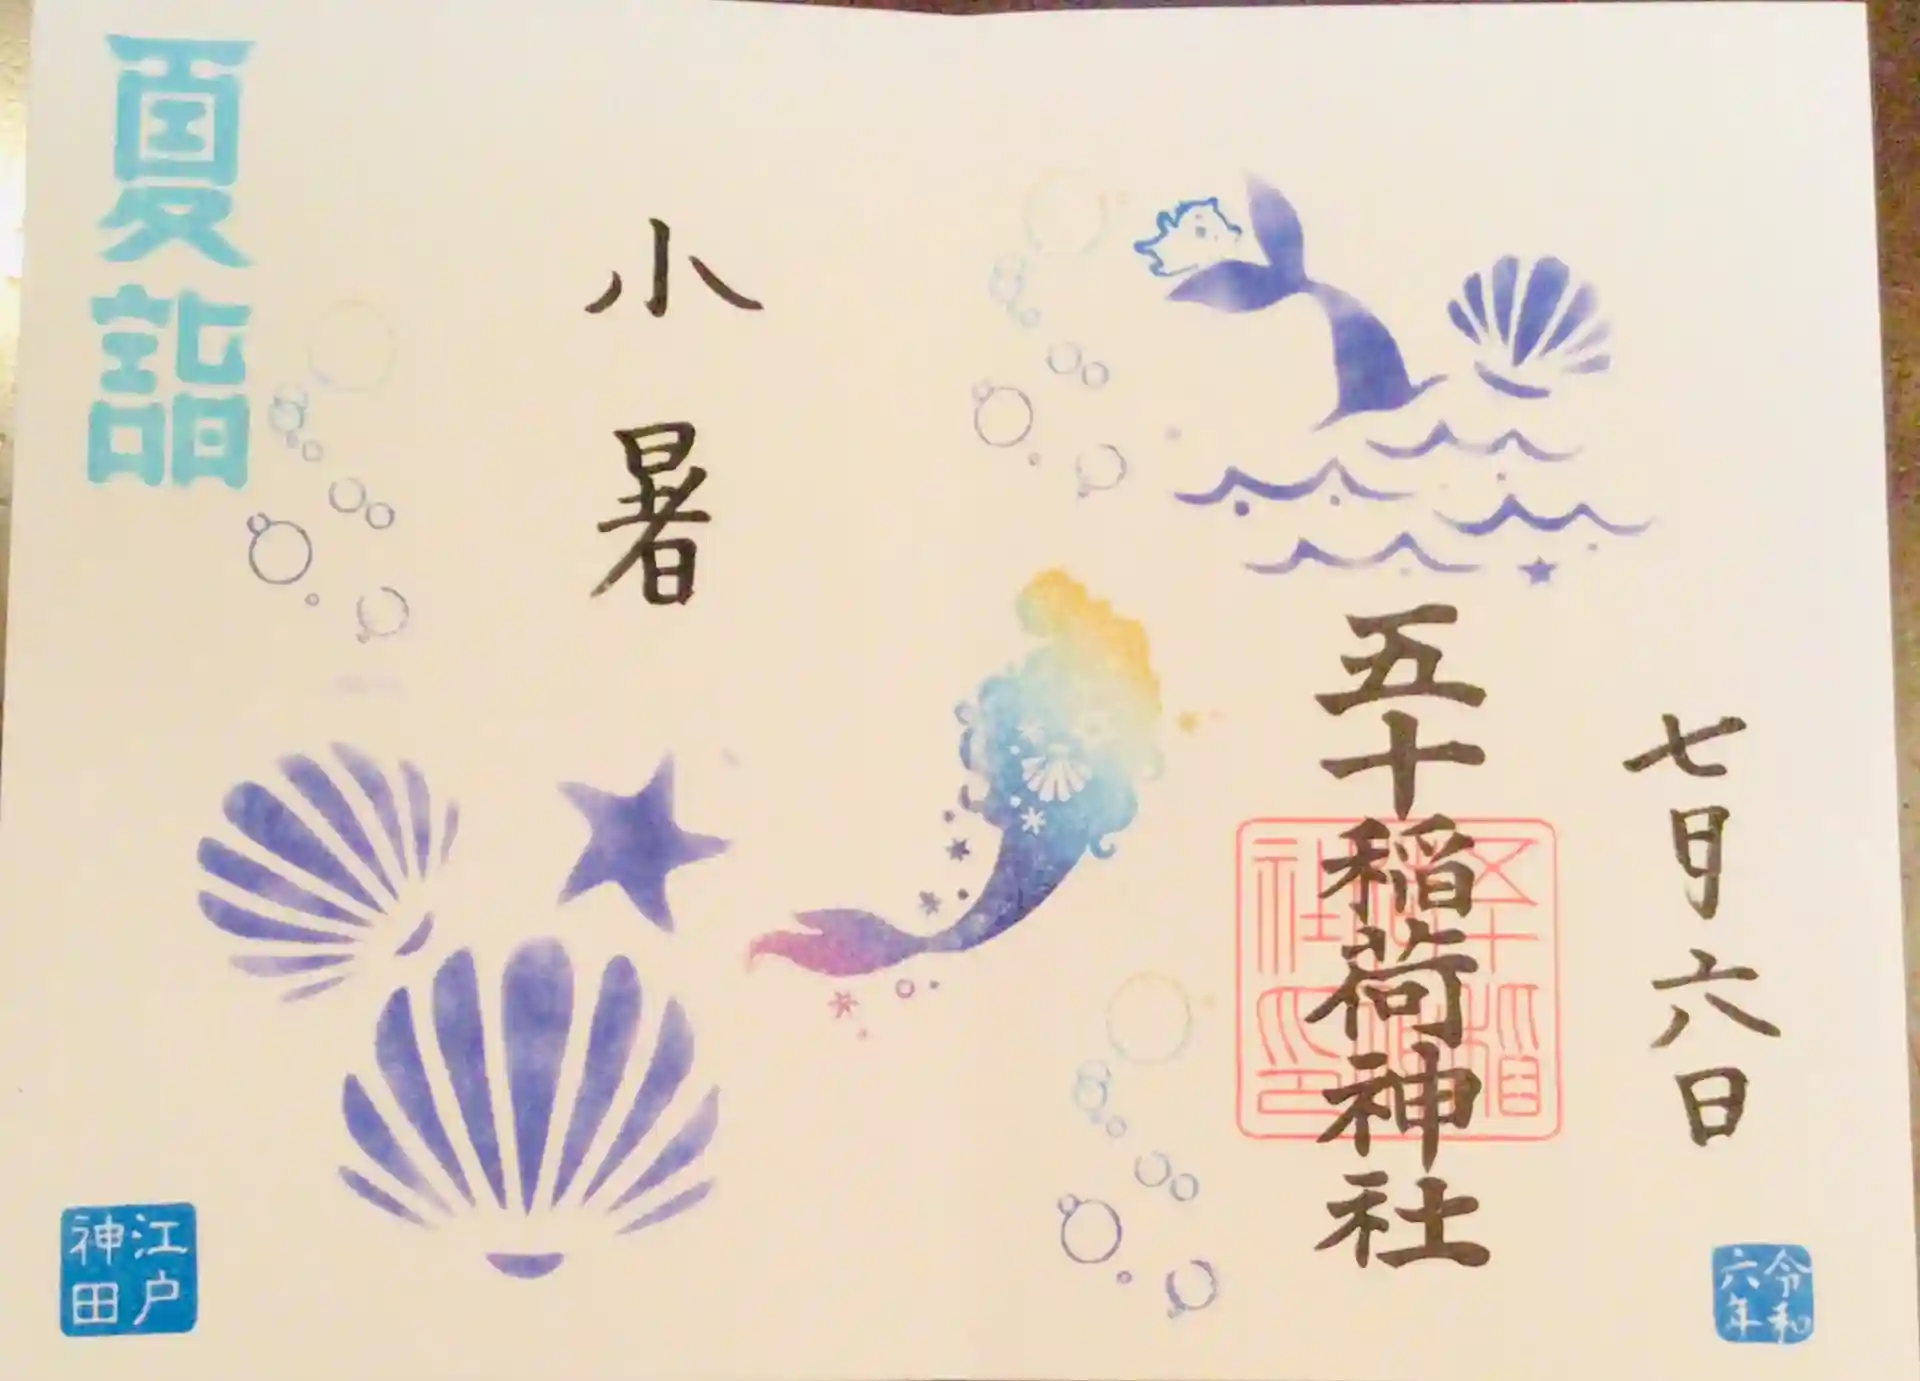 七月六日
五十稲荷神社
五十稲荷神社印
令和六年
小暑
夏詣
江戸神田